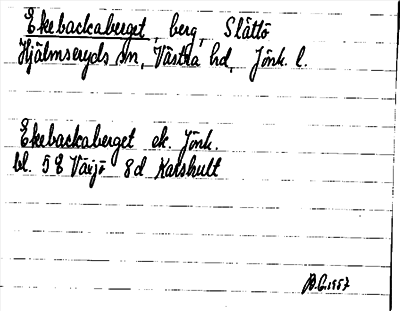 Ekebackaberget, berg, Slättö
Hjälmseryds sn, Västra hd, Jönk. l.
Ekebackaberget ek. Jönk.
bl. 5E Växjö 8d Karshult
B.G. 1957